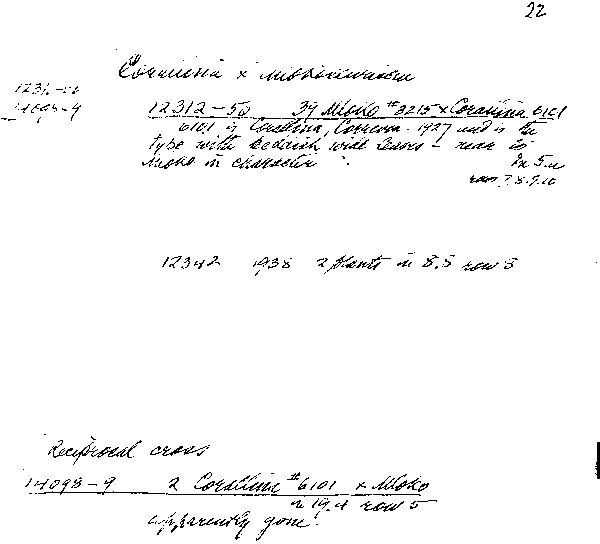 22
Corallina x
14093-9
12312-50 39 Mloko #3215 x Corallina 6101
6101 is Corallina, 1927 and is the
type with reddish wide leaves - near to
Mloko in character
In 5.
row 7.8.9.10
12342 1938 2 plants in 8.5 row 3
Reciprocal cross
14093-9 2 Corallina #6101 x Mloko
in 19.4 row 5
apparently gone.